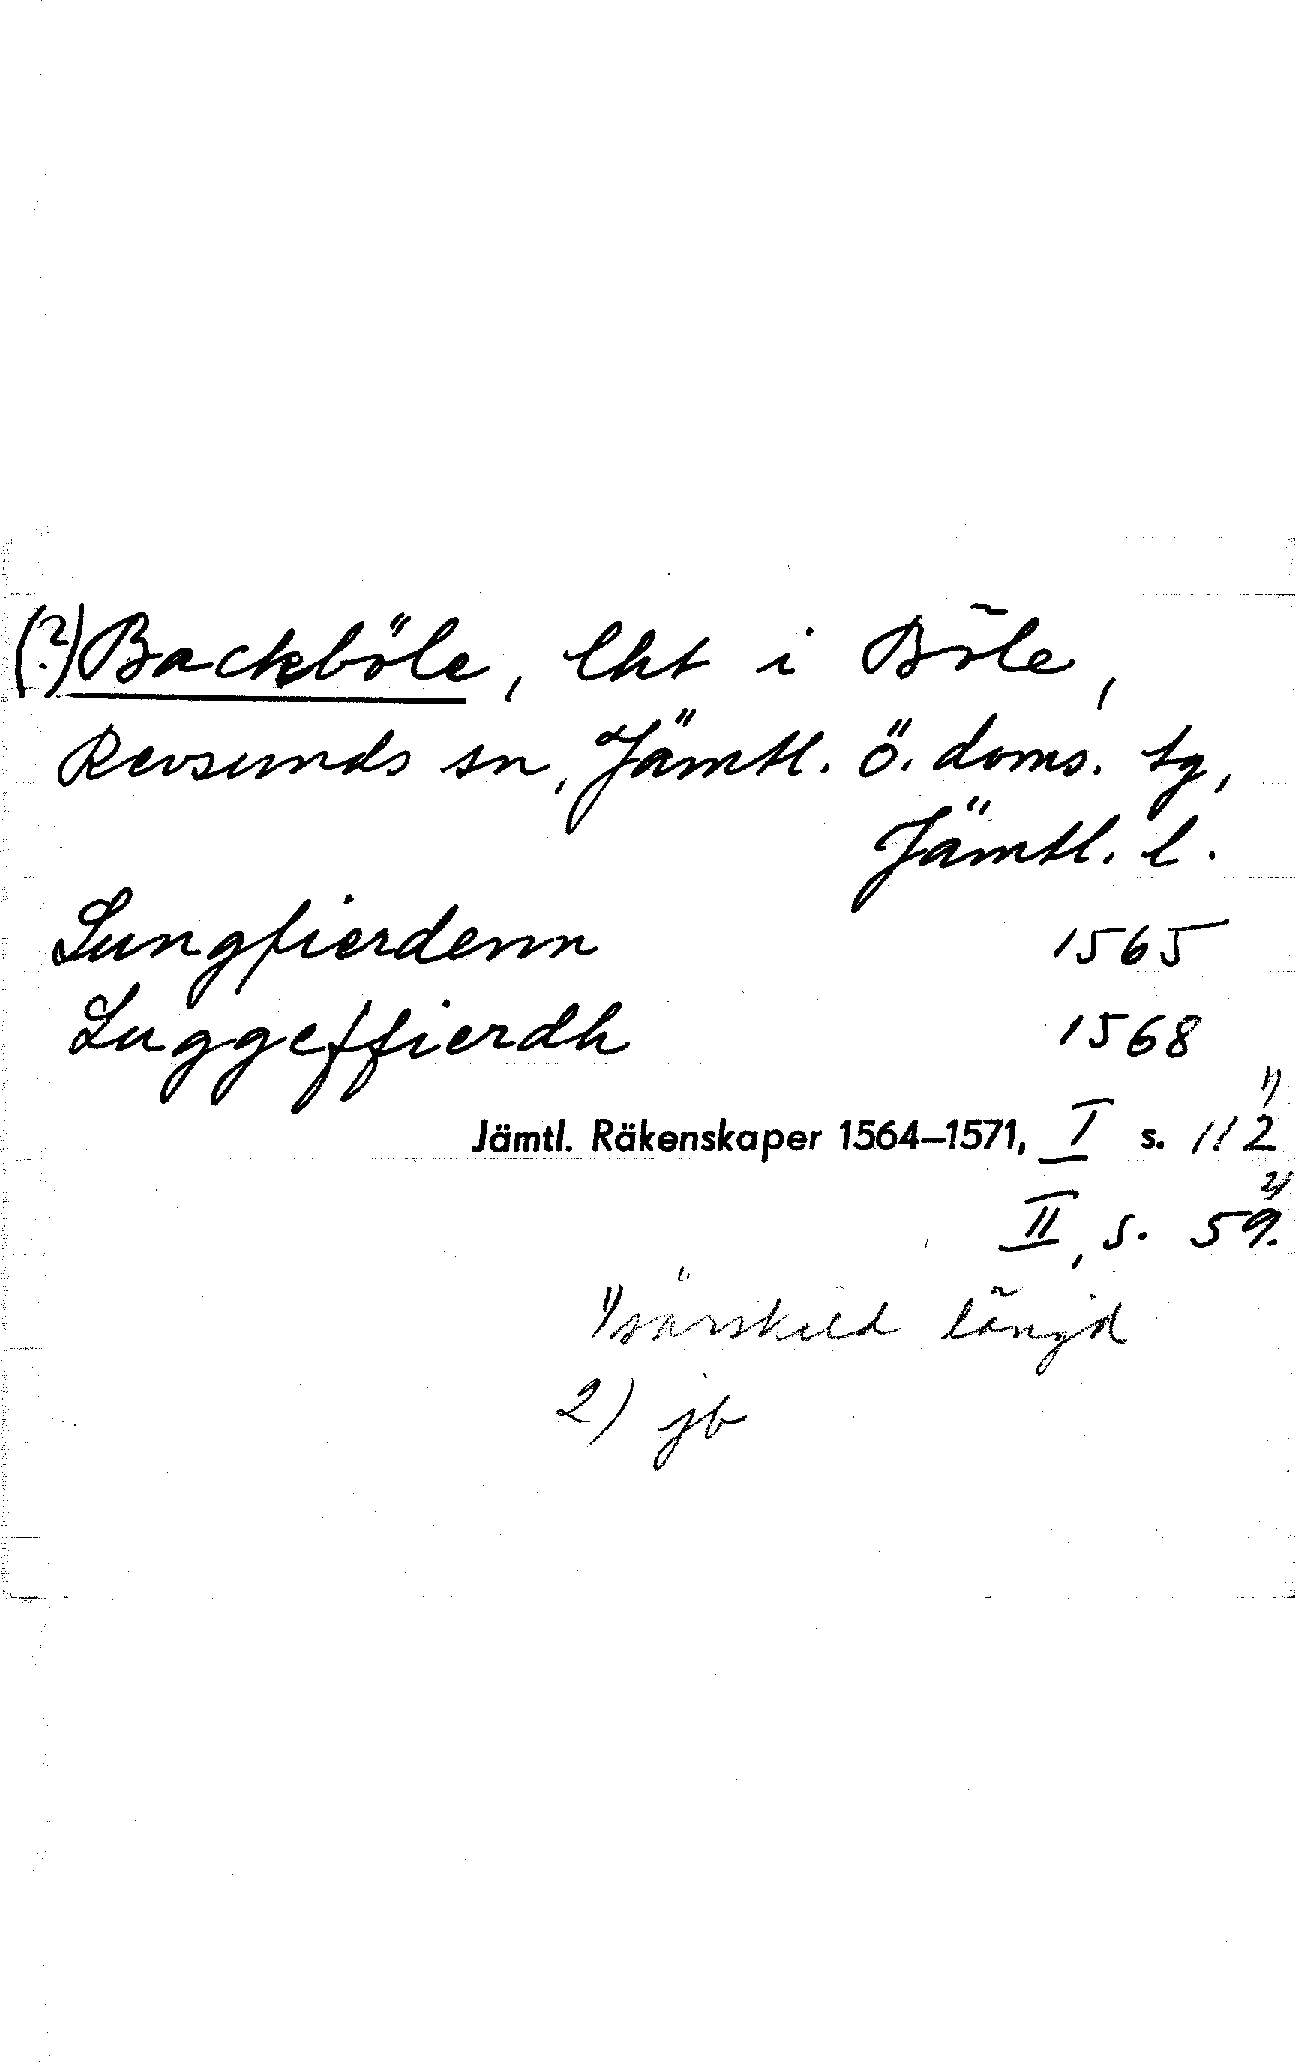 (?) Backböle, lht i Böle,
Revsunds sn, Jämtl. ö. doms. tg,
Jämtl. l.
Lungfierdenn 1565
Luggeffierdh 1568
Jämtl. Räkenskaper 1564–1571, I s. 112 1)
II, s. 59. 2)
1) särskild längd
2) jb